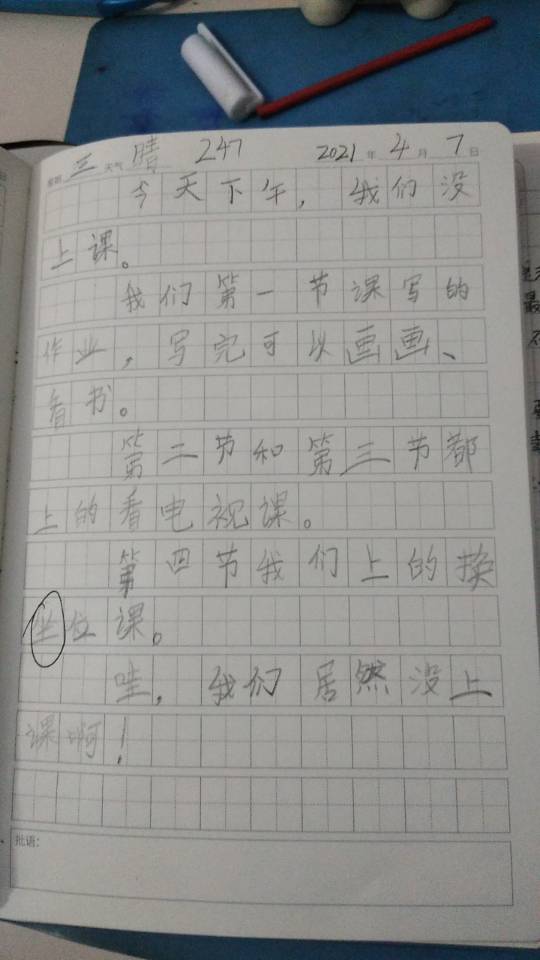 星期 三 天气 晴 247 2021 年 4 月 7 日
今天下午，我们没
上课。
我们第一节课写的
作业，写完可以画画、
看书。
第二节和第三节都
上的看电视课。
第四节我们上的换
坐位课。
哇，我们居然没上
课啊！
批语：